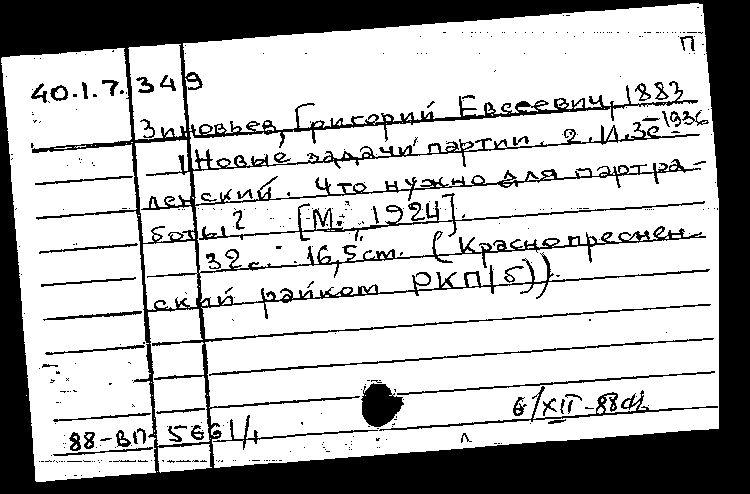 П
40.1.7.349
Зиновьев, Григорий Евсеевич, 1883
-1936
Новые задачи партии. 2. И. Зе-
ленский. Что нужно для партра-
боты? [М., 1924].
32 с. 16,5 cm. (Краснопреснен-
ский райком РКП(б)).
6/XII-88
88-ВП-5661/1